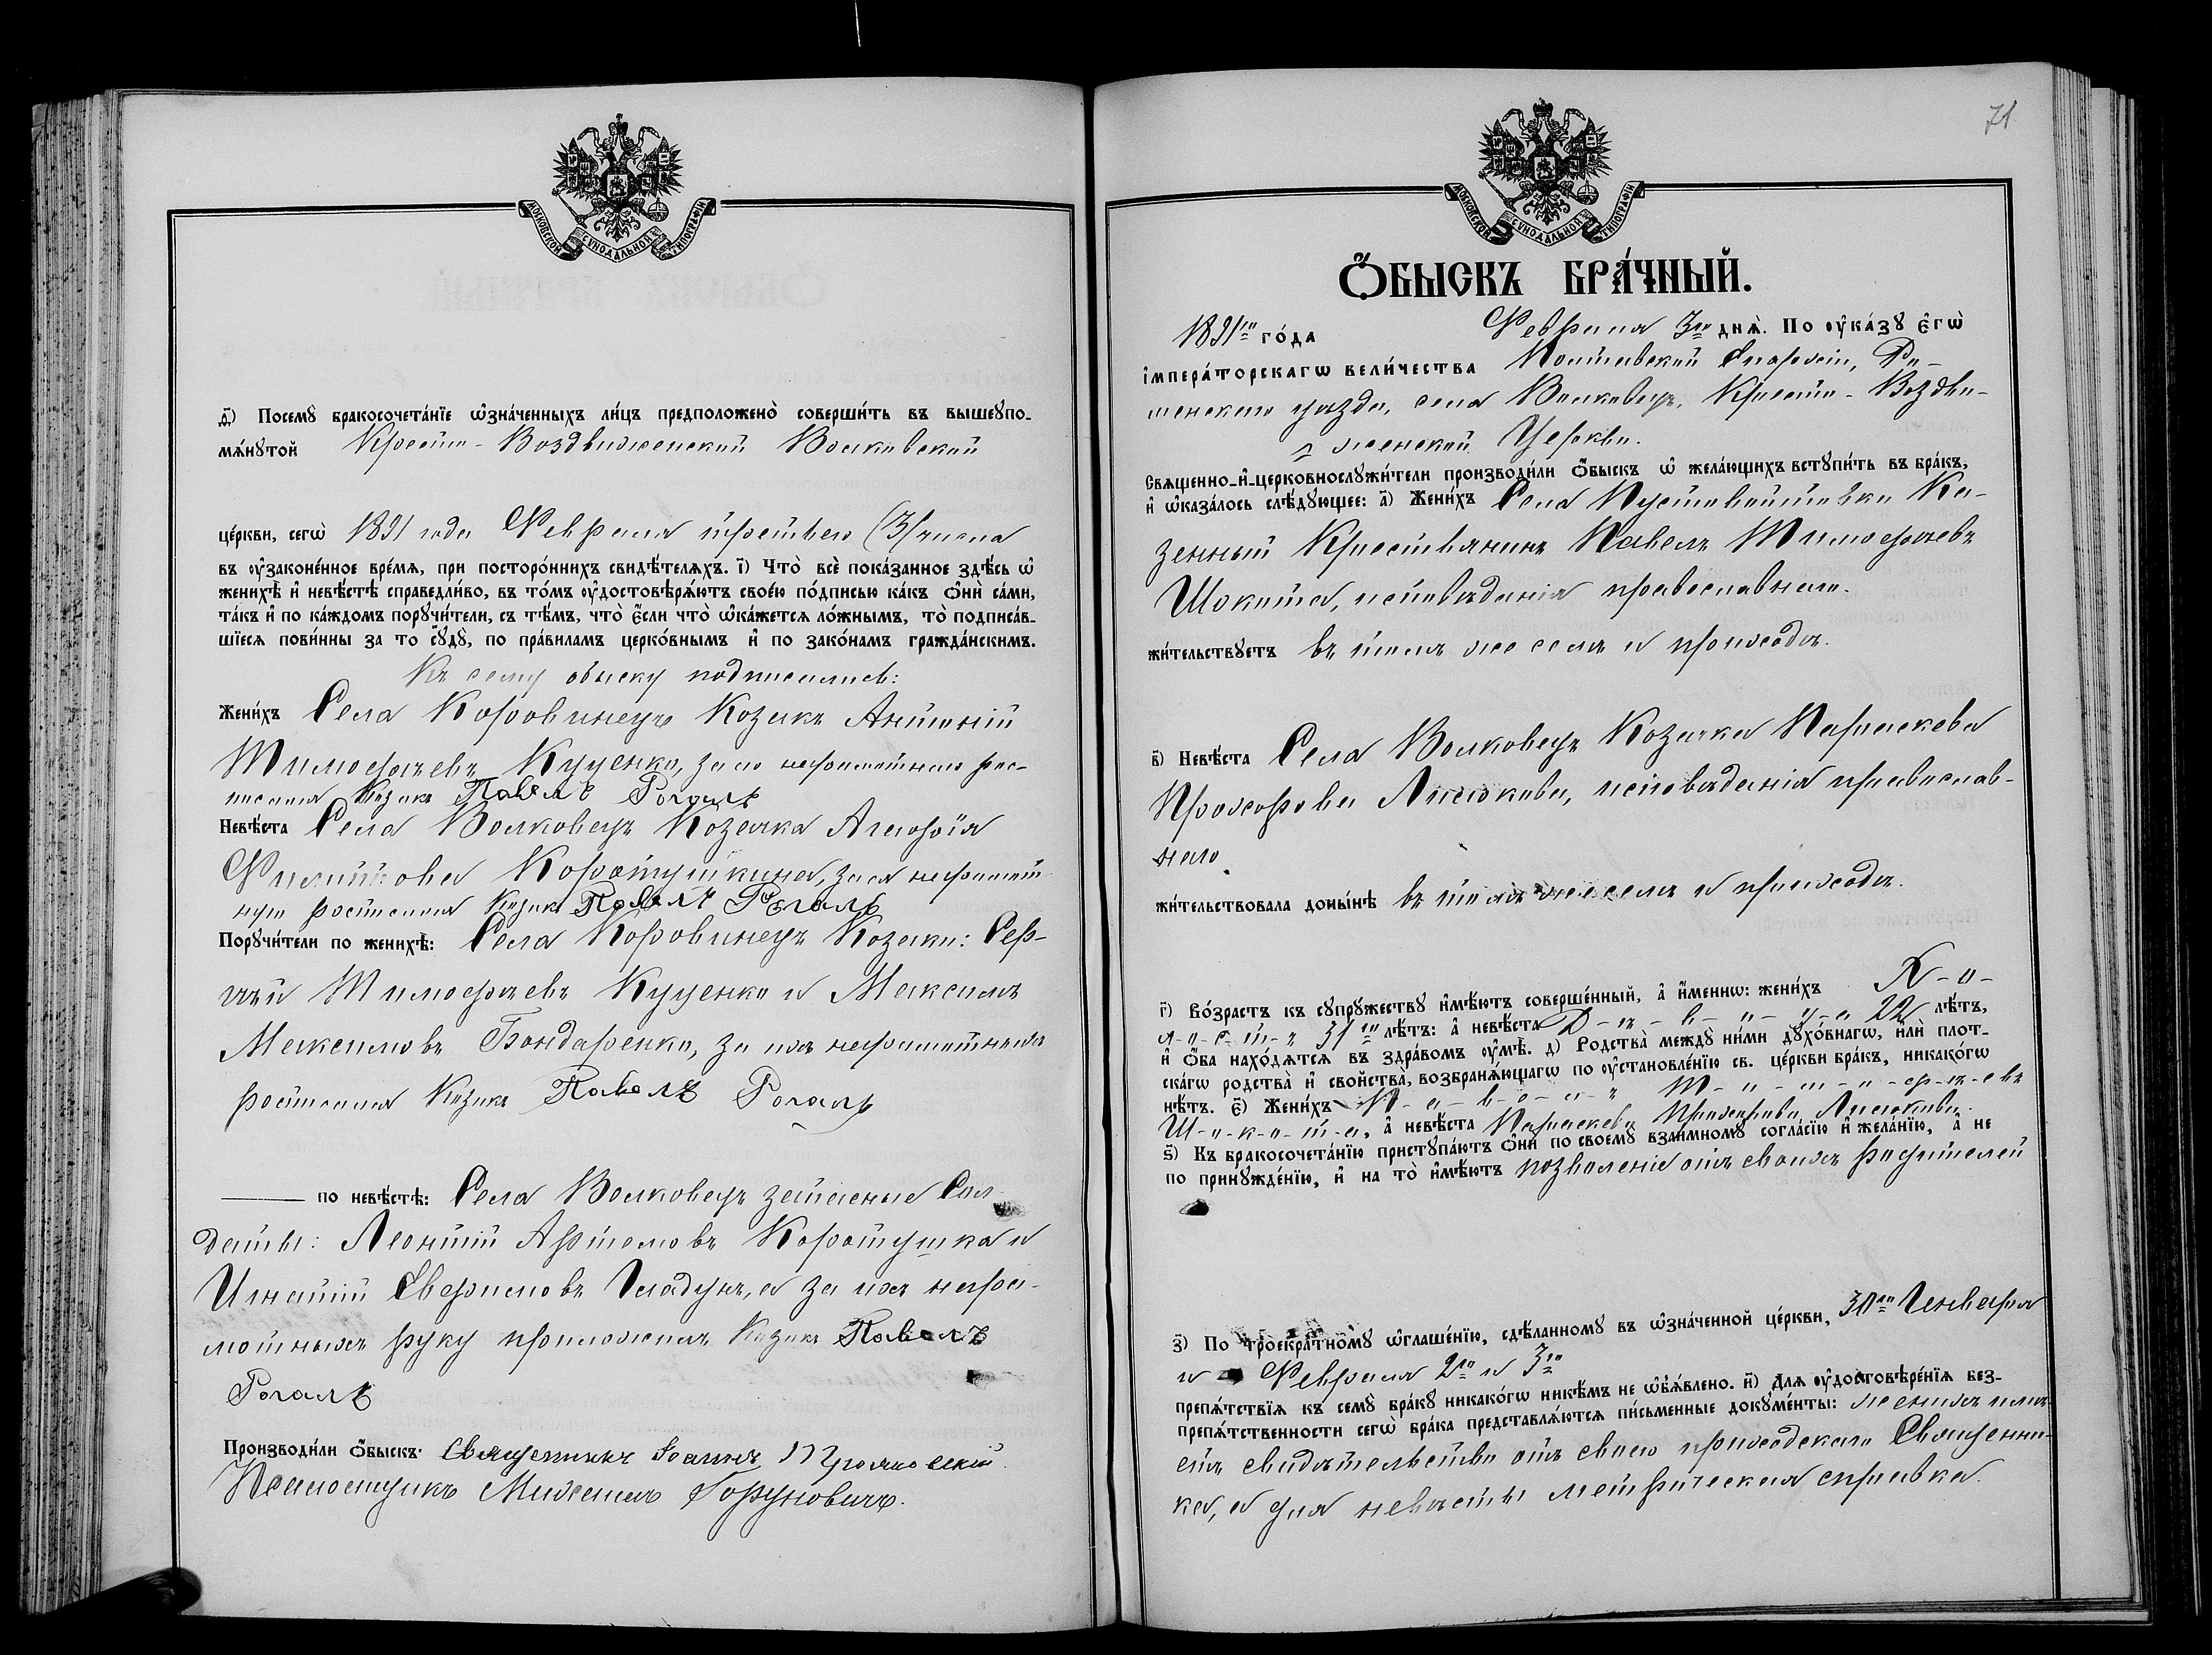 МОСКОВСКОЙ СѴНОДАЛЬНОЙ ТИПОГРАФІИ
ѳ҃) Посемꙋ бракосочета́нїе ѡ҆зна́ченныхъ ли́цъ предположено̀ соверши́ть въ вышеꙋпо-
мѧ́нꙋтой Кресто-Воздвиженской Волковской
це́ркви, сегѡ̀ 1891 года Февраля третьего (3) числа
въ ᲂу҆законе́нное вре́мѧ, при посторо́ннихъ свидѣ́телѧхъ. і҃) Что̀ всѐ пока́занное здѣ́сь ѡ҆
женихѣ̀ и҆ невѣ́стѣ справедли́во, въ то́мъ ᲂу҆достовѣрѧ́ютъ свое́ю по́дписью ка́къ ѻ҆нѝ са́ми,
та́къ и҆ по ка́ждомъ порꙋчи́тели, съ тѣ́мъ, что̀ є҆́сли что̀ ѡ҆ка́жетсѧ ло́жнымъ, то̀ подписа́в-
шїесѧ пови́нны за то сꙋдꙋ̀, по пра́виламъ церко́внымъ и҆ по зако́намъ гражда́нскимъ.
Къ сему обыску подписались:
Жени́хъ Села Коровинецъ Козакъ Антоній
Тимофѣевъ Куценко, за его неграмотнаго рос-
писался Козакъ Павелъ Рогаль
Невѣ́ста Села Волковецъ Козачка Агафія
Филипова Коротушкина, за ея неграмот
ную росписался Козакъ Павелъ Рогаль
Порꙋчи́тели по женихѣ̀: Села Коровинецъ Козаки: Сер-
гѣй Тимофѣевъ Куценко и Максимъ
Максимовъ Бондаренко, за ихъ неграмотныхъ
росписался Козакъ Павелъ Рогаль
по невѣ́стѣ: Села Волковецъ запасные Сол
даты: Леонтій Артемовъ Коротушка и
Игнатій Гладунъ, а за ихъ негра-
мотныхъ руку приложилъ Козакъ Павелъ
Рогаль
Производи́ли ѻ҆́быскъ: Священникъ Іоаннъ
Псаломщикъ Михаилъ Горуновичъ.
71
МОСКОВСКОЙ СѴНОДАЛЬНОЙ ТИПОГРАФІИ
Ѻ҆́БЫСКЪ БРА́ЧНЫЙ.
1891го го́да Февраля 3го днѧ̀. По ᲂу҆ка́зꙋ є҆гѡ̀
і҆мпера́торскагѡ вели́чества Полтавской Епархіи, Ро-
менскаго уѣзда, села Волковецъ, Кресто-Воздви-
женской Церкви.
Свѧщенно-и҆-церковнослꙋжи́тели производи́ли ѻ҆́быскъ ѡ҆ жела́ющихъ встꙋпи́ть въ бра́къ,
и҆ ѡ҆каза́лось слѣ́дꙋющее: а҃) Жени́хъ Села Пустовойтовки Ка-
зенный Крестьянинъ Павелъ Тимофѣевъ
Шокота, исповѣданія православнаго.
жи́тельствꙋетъ въ томъ же селѣ и приходѣ.
в҃) Невѣ́ста Села Волковецъ Козачка Параскева
Прохорова Лысокова, исповѣданія православ-
наго
жи́тельствовала доны́нѣ въ томъ же селѣ и приходѣ.
г҃) Во́зрастъ къ сꙋпрꙋ́жествꙋ и҆мѣ́ютъ соверше́нный, а҆ и҆́меннѡ: жени́хъ Х-о-
л-о-с-т-ъ 31го лѣ́тъ: а҆ невѣ́ста Д-ѣ-в-и-ц-а 22 лѣ́тъ,
и҆ ѻ҆́ба нахо́дѧтсѧ въ здра́вомъ ᲂу҆мѣ̀. д҃) Родства̀ междꙋ̀ ни́ми дꙋхо́внагѡ, и҆лѝ плот-
ска́гѡ родства̀ и҆ сво́йства̀, возбранѧ́ющагѡ по ᲂу҆становле́нїю св. це́ркви бра́къ, никако́гѡ
нѣ́тъ. є҃) Жени́хъ П-а-в-е-л-ъ Т-и-м-о-ф-ѣ-е-въ
Ш-о-к-о-т-а, а҆ невѣ́ста Параскева Прохорова Лысокова.
ѕ҃) Къ бракосочета́нїю пристꙋпа́ютъ ѻ҆нѝ по своемꙋ̀ взаи́мномꙋ согла́сїю и҆ жела́нїю, а҆ не
по принꙋжде́нїю, и҆ на то̀ и҆мѣ́ютъ позволеніе отъ своихъ родителей
з҃) По троекра́тномꙋ ѡ҆глаше́нїю, сдѣ́ланномꙋ въ ѡ҆зна́ченной це́ркви, 30го Генваря
и Февраля 2го и 3го
препѧ́тствїѧ къ семꙋ̀ бра́кꙋ никако́гѡ никѣ́мъ не ѡ҆б̾ѧ́влено. и҃) Для ᲂу҆достовѣре́нїѧ без-
препѧ́тственности сегѡ̀ бра́ка представлѧ́ютсѧ пи́сьменные докꙋме́нты: женихъ имѣ-
етъ свидѣтельство отъ своего приходскаго Священни-
ка, а для невѣсты метрическая справка.